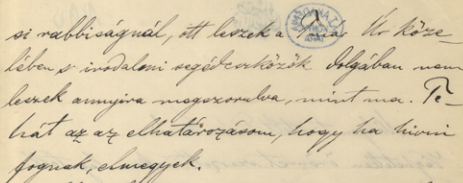 si rabbiságnál, ott leszek a Tanár Úr köze-
lében s irodalmi segédeszközök dolgában nem
leszek annyira megszorulva, mint ma. Te-
hát az az elhatározásom, hogy ha hivni
fognak, elmegyek.